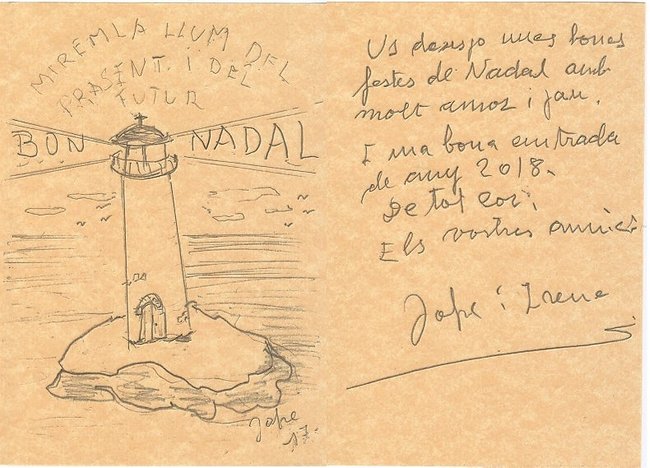 MIREM LA LLUM DEL
PRASENT. I DEL
FUTUR
BON NADAL
Jope
17.
Us desitjo unes bones
festes de Nadal amb
molt amor i pau.
I una bona entrada
de any 2018.
De tot cor;
Els vostres amics
Jope i Irene